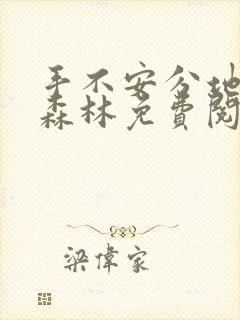 手不安分地
森林免費閱
梁偉家